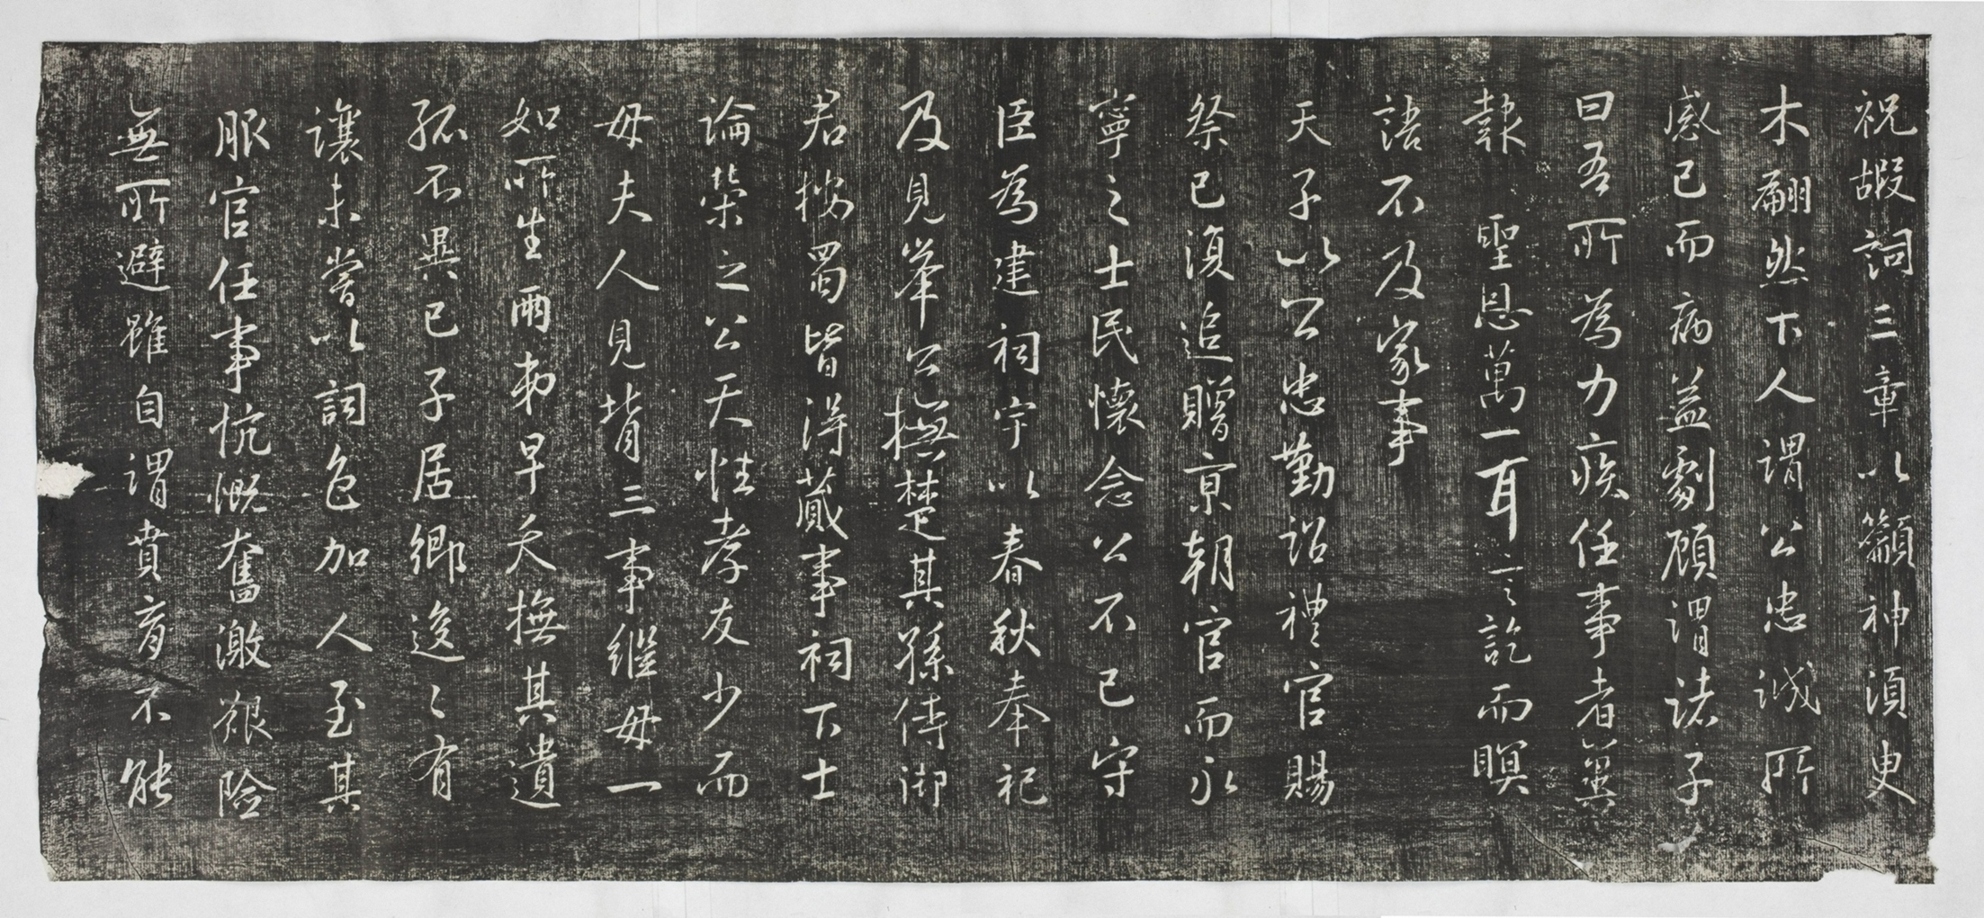 祝嘏詞三章以籲神須臾
木翩然下人謂公忠誠所
感已而病益劇顧謂諸子
曰吾所為力疾任事者冀
報聖恩萬一耳言訖而瞑
語不及家事
天子以公忠勤詔禮官賜
祭已復追贈京朝官而永
寧之士民懷念公不已守
臣為建祠宇以春秋奉祀
及見峯公撫楚其孫侍御
君按蜀皆得蕆事祠下士
論榮之公天性孝友少而
母夫人見背三事繼母一
如所生兩弟早夭撫其遺
孤不異己子居鄉逡〻有
讓未嘗以詞色加人至其
服官任事慷慨奮激艱險
無所避雖自謂賁育不能